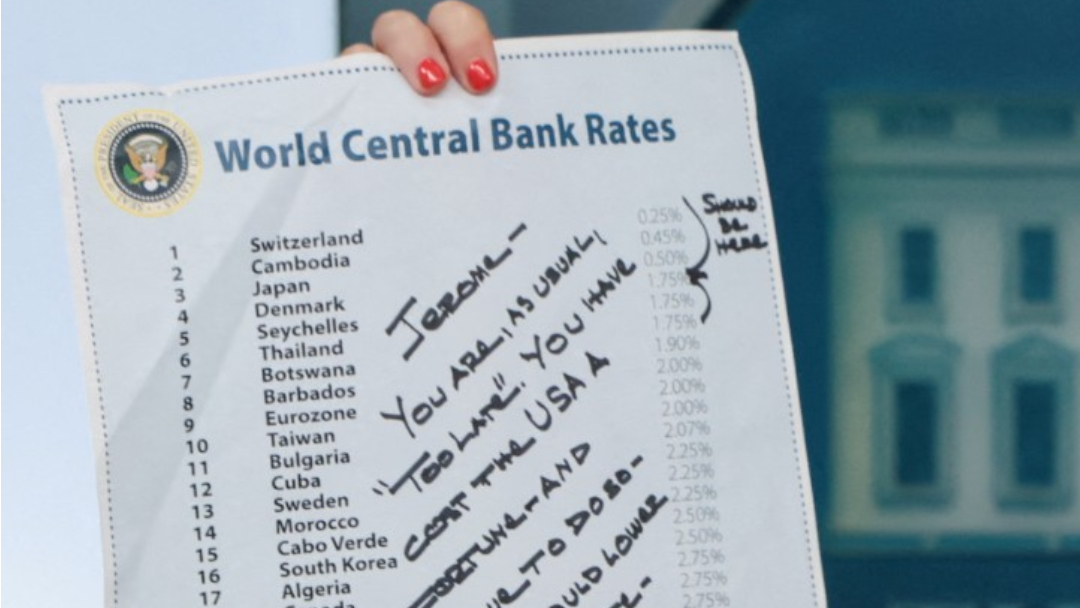 SEAL OF THE PRESIDENT OF THE UNITED STATES
World Central Bank Rates
1 Switzerland 0.25%
2 Cambodia 0.45%
3 Japan 0.50%
4 Denmark 1.75%
5 Seychelles 1.75%
6 Thailand 1.75%
7 Botswana 1.90%
8 Barbados 2.00%
9 Eurozone 2.00%
10 Taiwan 2.00%
11 Bulgaria 2.07%
12 Cuba 2.25%
13 Sweden 2.25%
14 Morocco 2.25%
15 Cabo Verde 2.50%
16 South Korea 2.50%
17 Algeria 2.75%
Canada 2.75%
2.75%
SHOULD
BE
HERE
JEROME-
YOU ARE, AS USUAL,
"TOO LATE". YOU HAVE
COST THE USA A
FORTUNE-AND
TO DO SO-
LOWER